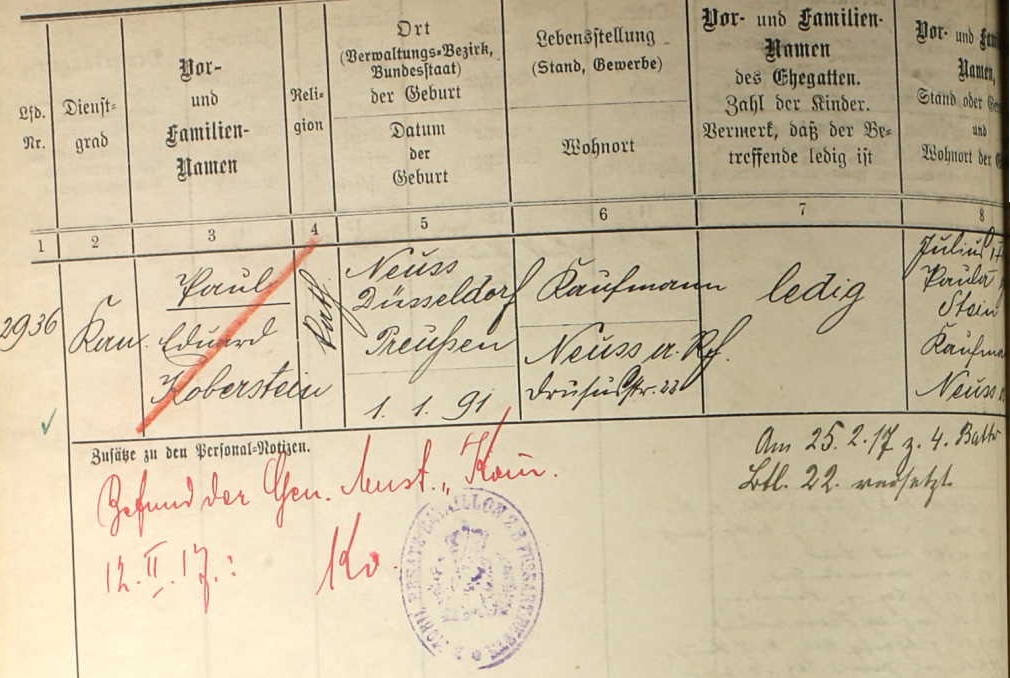 Lfd.
Nr.
Dienst=
grad
Vor-
und
Familien-
Namen
Reli-
gion
Ort
(Verwaltungs=Bezirk,
Bundesstaat)
der Geburt
Datum
der
Geburt
Lebensstellung
(Stand, Gewerbe)
Wohnort
Vor- und Familien-
Namen
des Ehegatten.
Zahl der Kinder.
Vermerk, daß der Be=
treffende ledig ist
Vor- und
Namen,
Stand oder
und
Wohnort der
1 2 3 4 5 6 7 8
2936
Kan.
Paul
Eduard
Koberstein
Kath.
Neuss
Düsseldorf
Preußen
1. 1. 91
Kaufmann
Neuss a. Rh.
Drususstr. 22
ledig
Julius
Paula
Stein
Neuss
Zusätze zu den Personal=Notizen.
Befund der Gen. Must.
12. II. 17.:
Kv.
Am 25.2.17 z. 4. Battr
Btl. 22. versetzt.